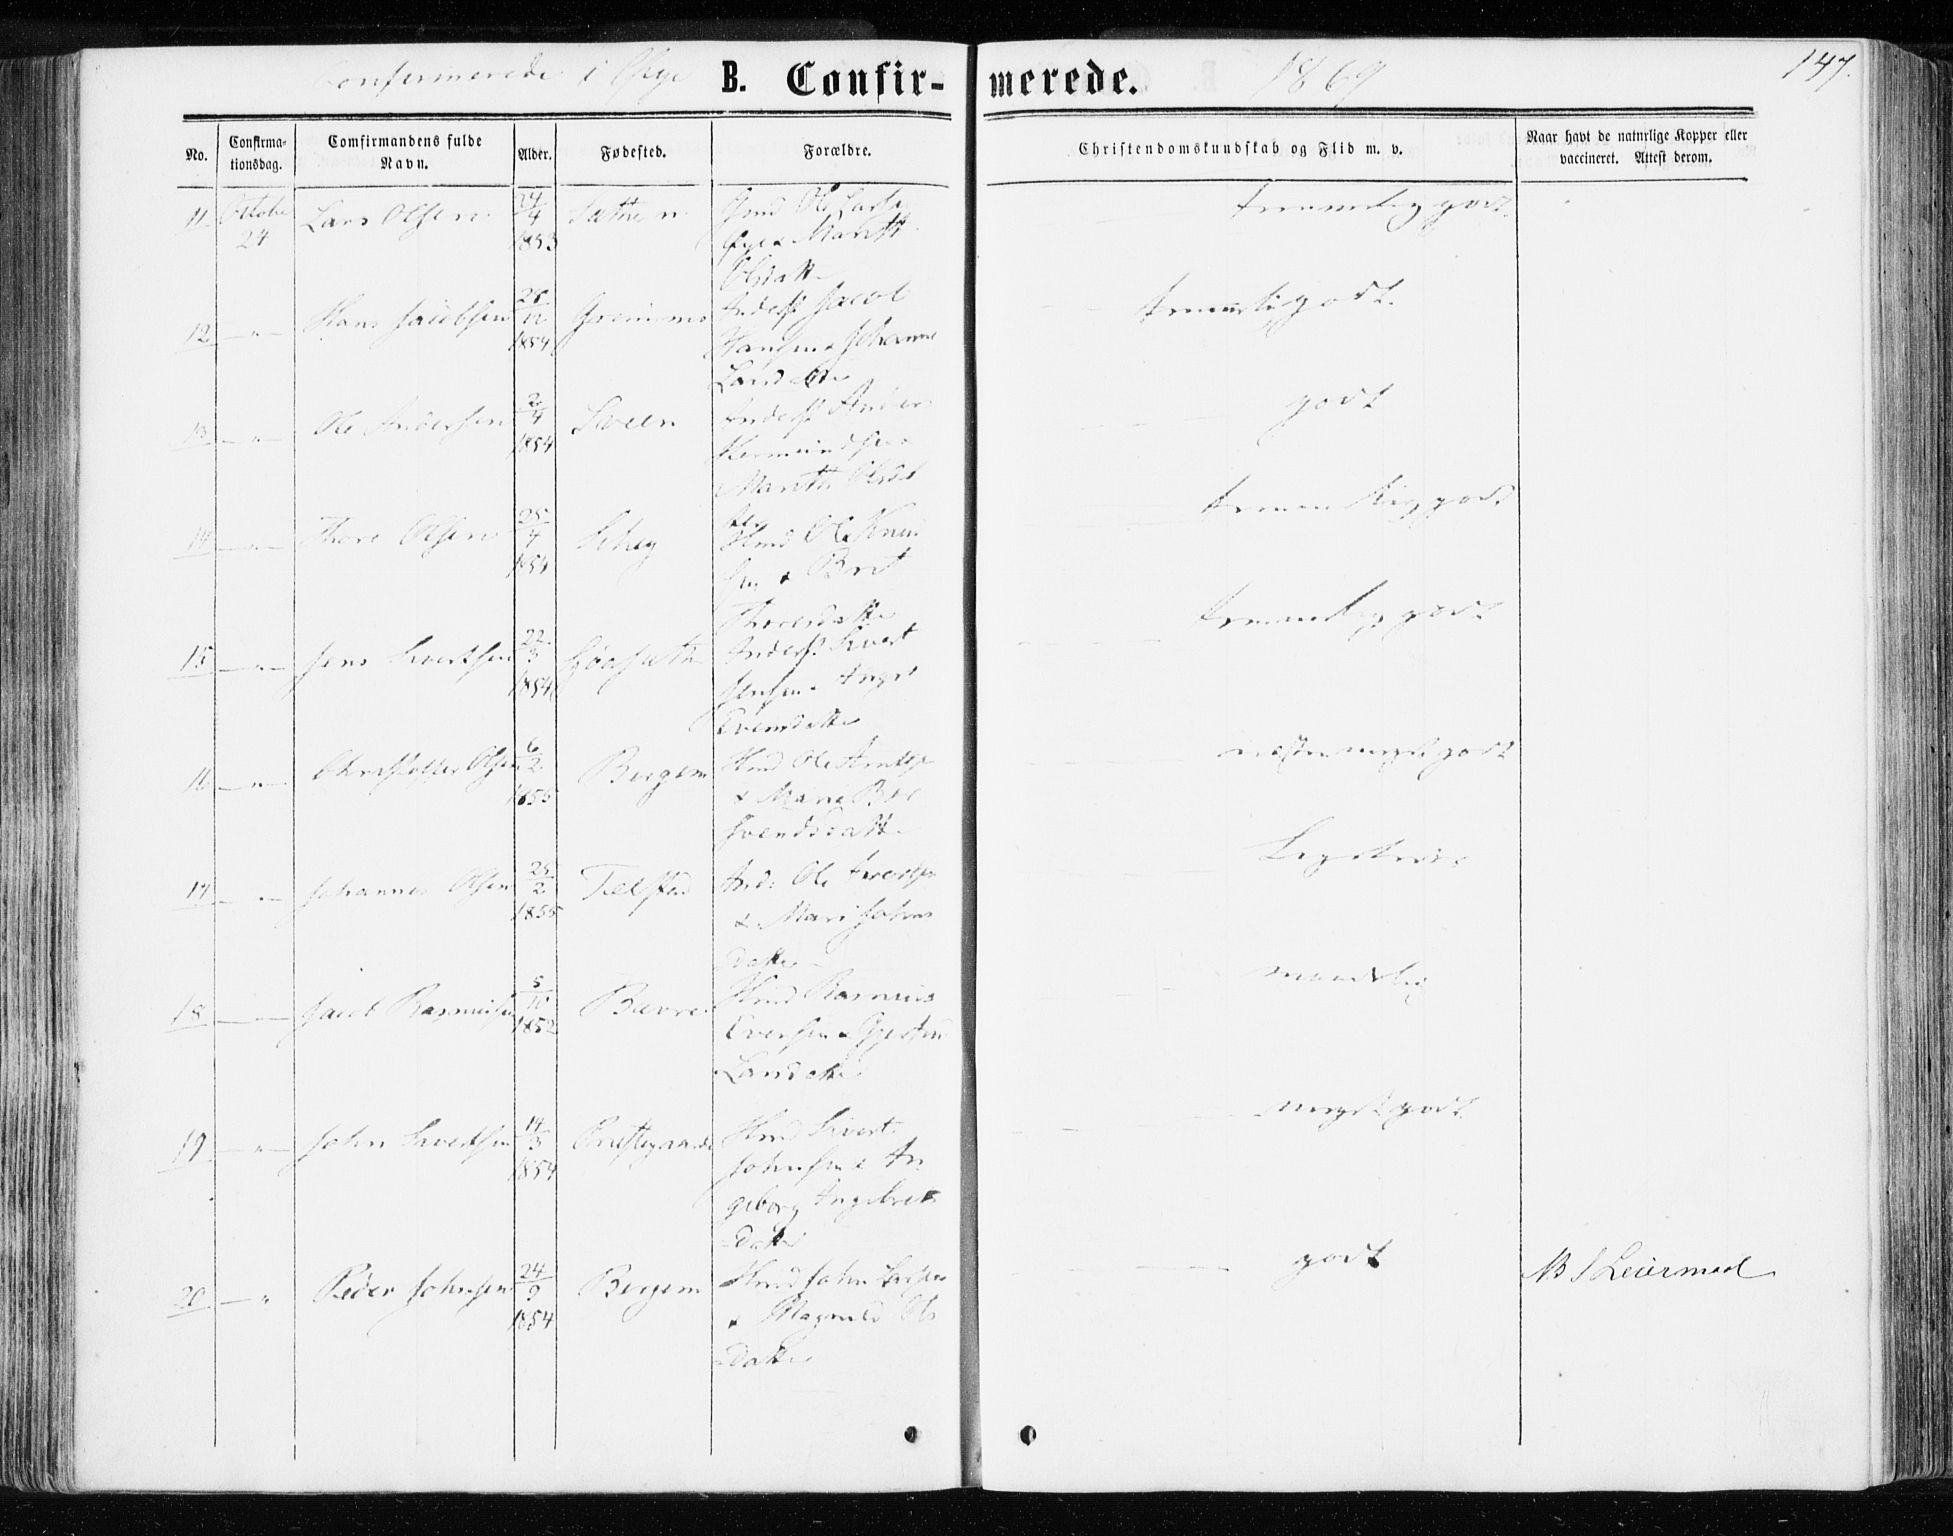 Confirmerede i Øye B. Confirmerede. 1869 147.
No. Confirmationsdag. Comfirmandens fulde Navn. Alder. Fødested. Forældre. Christendomskundskab og Flid m. v. Naar havt de naturlige Kopper eller vaccineret. Attest derom.
11 October 24 Lars Olsen 24/4 1853 Sæther Gmd Ole Larsen Øye & Marith Olsdatter temmelig godt.
12 — " — Hans Jacobsen 28/12 1854 Grimmo Inderst Jacob Hansen & Johanne Larsdatter temmelig godt.
13 — " — Ole Andersen 2/4 1854 Sveen Inderst Anders Hermundsen & Marith Olsdatter godt
14 — " — Thore Olsen 25/4 1854 Schey Hmd Ole Knudsen & Brit Thoresdatter temmelig godt
15 — " — Jens Sivertsen 22/3 1854 Inderst Sivert Jensen & Evensdatter temmelig godt
16 — " — Christopher Olsen 6/2 1855 Bergem Hmd Ole Arntsen & Marie Svendsdatter næsten meget godt
17 — " — Johannes Olsen 25/2 1855 Telstad Ind. Ole & Mari Johnsdatter
18 — " — Jacob Rasmussen 5/10 1852 Bævre Hmd Rasmus Evensen & Larsdatter maadelig
19 — " — John Sivertsen 14/3 1854 Præstegaarden Hmd Sivert Johnsen & Ingeborg Ingebretsdatter meget godt
20 — " Peder Johnsen 24/9 1854 Bergem Hmd John Larsen & Magnild Olsdatter godt Leiermaal